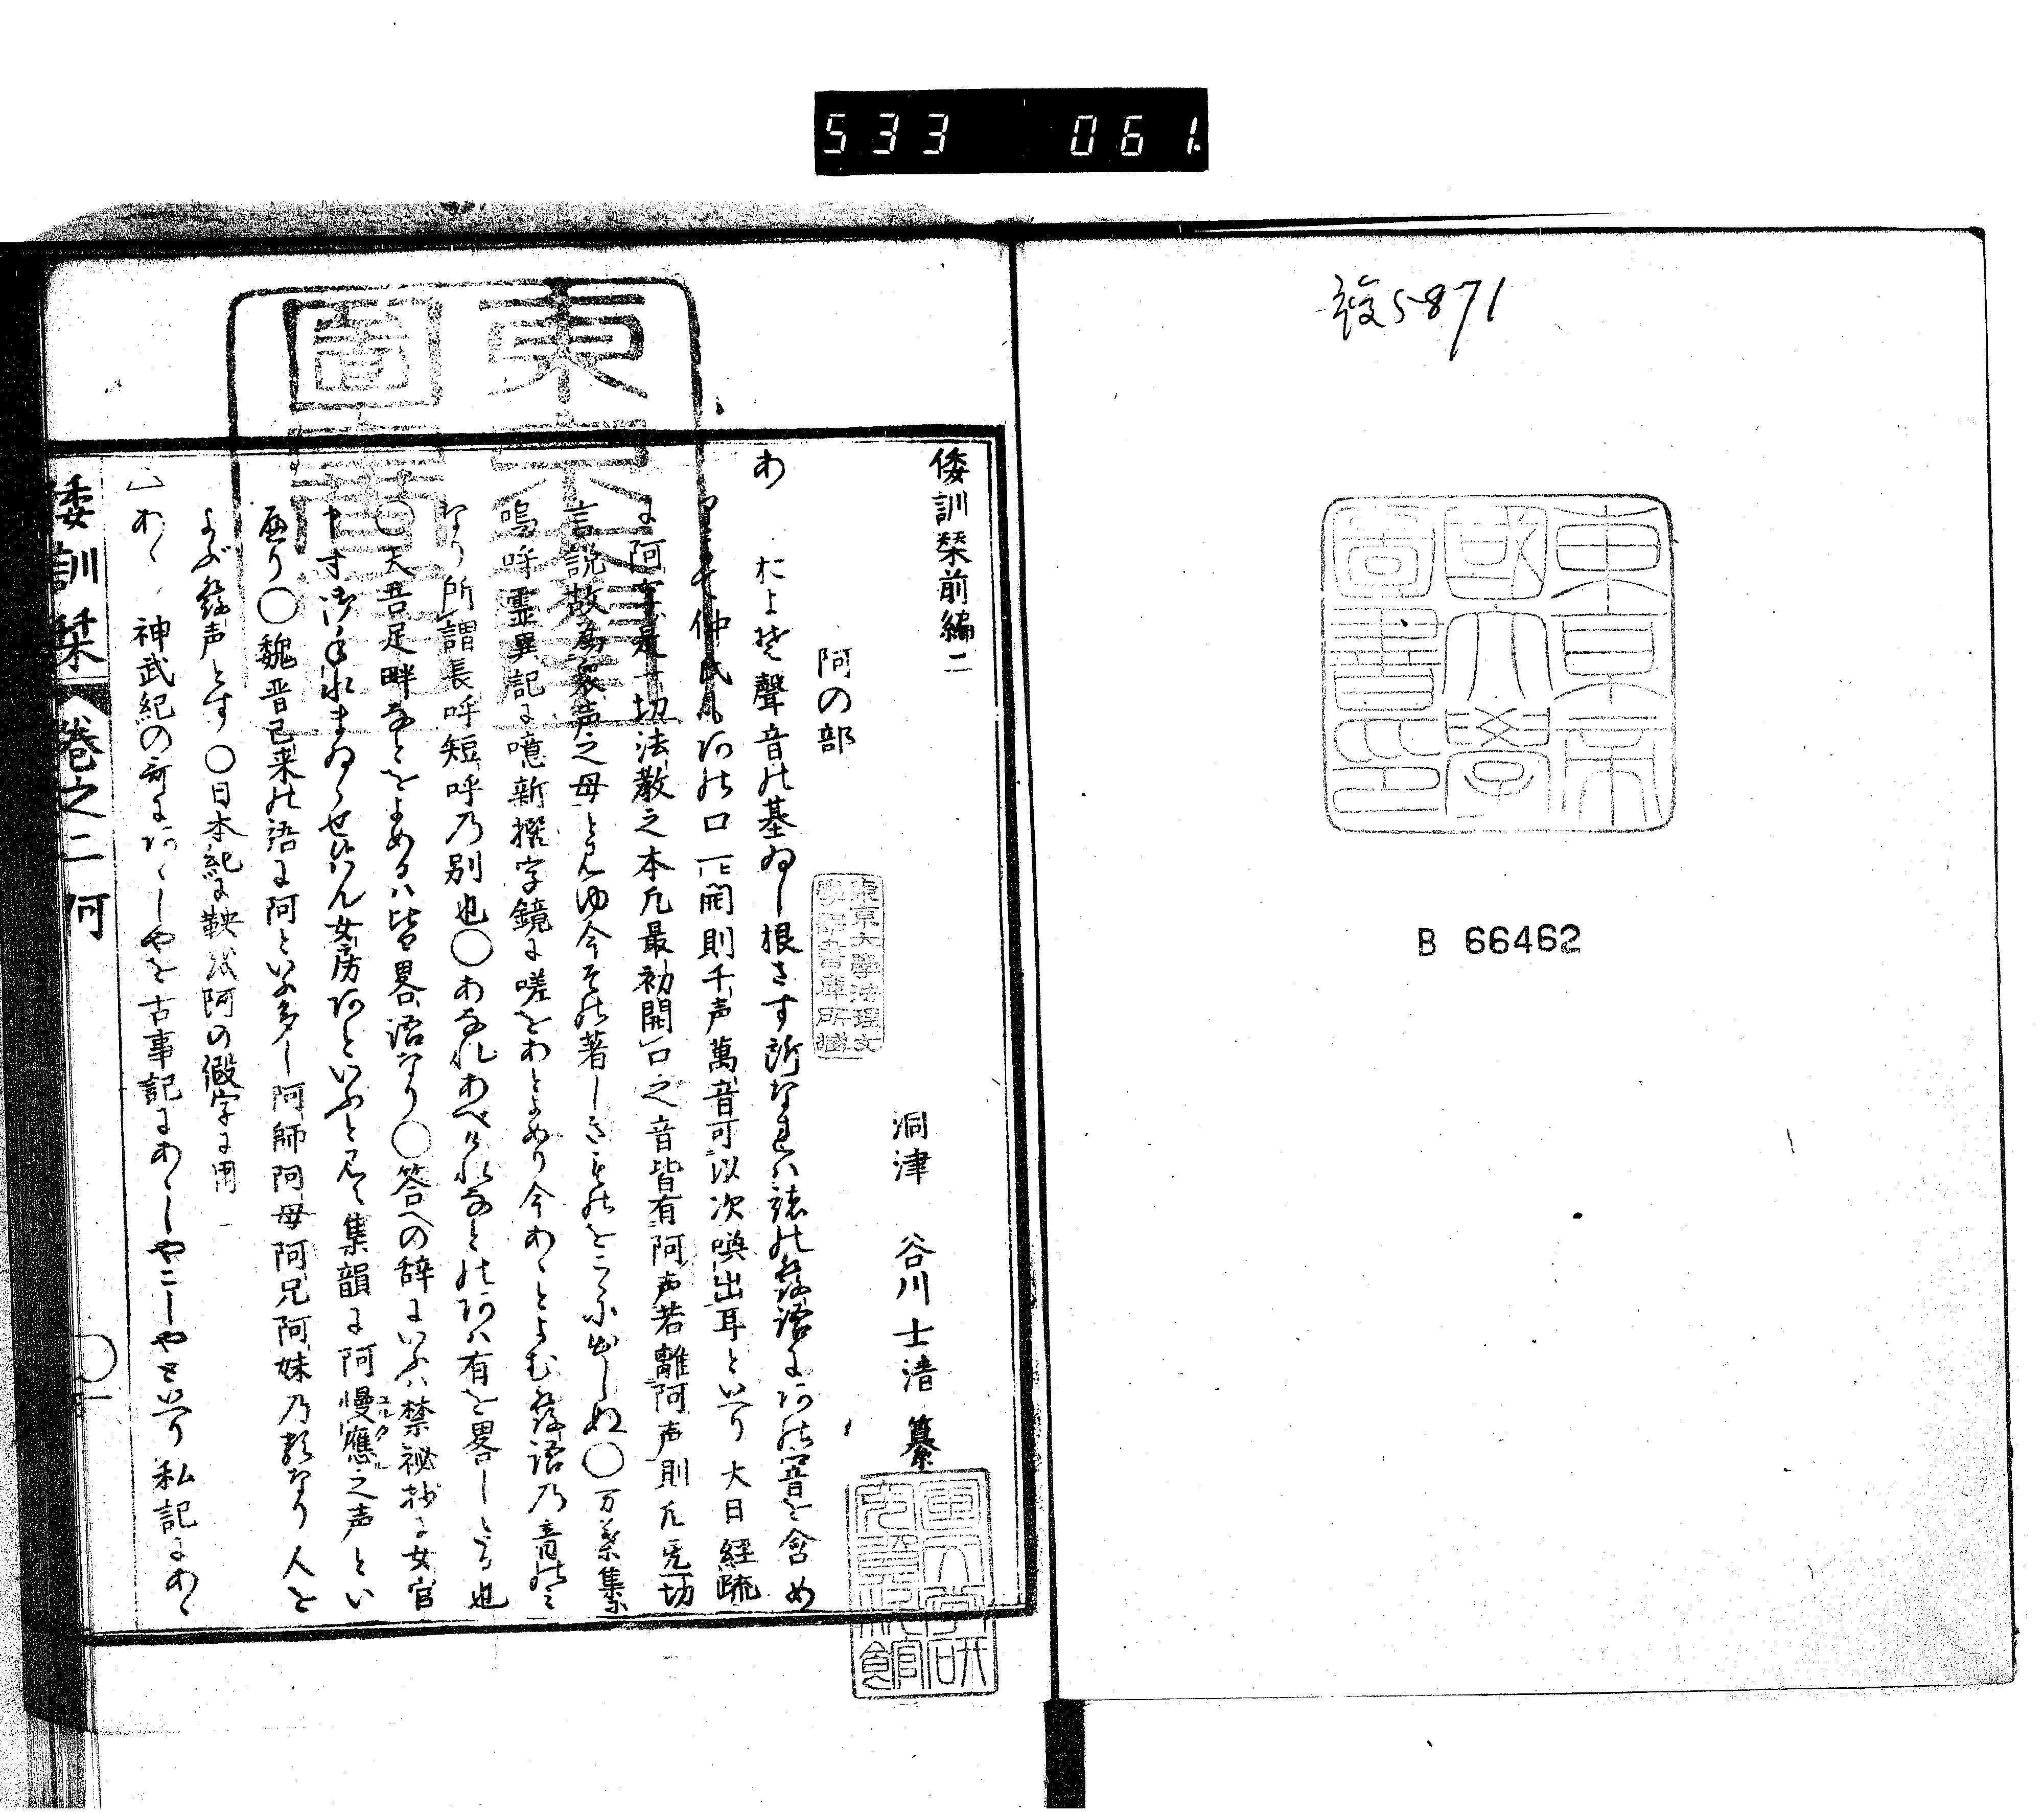 533 061.
複5871
東京帝國大學圖書印
B 66462
倭訓栞前編二
洞津 谷川士清 纂
阿の部
東京大學法理文學部書庫所藏
あ およそ聲音の基ゐし根さす所なれは諸の發語にアの響を含めり
仲氏もアの口一開則千声萬音可以次喚出耳といへり大日経疏
に阿字是一切法教之本凡最初開口之音皆有阿声若離阿声則凡无一切
言説故為衆声之母と見ゆ今その著しきものをこゝに出しぬ〇万葉集
嗚呼霊異記に噫新撰字鏡に嗟をあとよめり今あゝとよむ發語乃音に
なり所謂長呼短呼乃別也〇あなれあべけれなとのアハ有を畧したる也
〇天吾足畔なとをよめるハ皆畧語なり〇答への辞にいふハ禁祕抄に女官
申す御手水まゐらせ候はん女房アといふと見え集韻に阿慢應之声とい
へり〇魏晋已来の語に阿といふ多し阿師阿母阿兄阿妹乃類なり人を
よぶ發声とす〇日本紀に鞍以阿の假字に用
あゝ 神武紀の哥にアゝしやを古事記にあゝしやこしやといへり私記にあゝ
倭訓栞 巻之二 阿